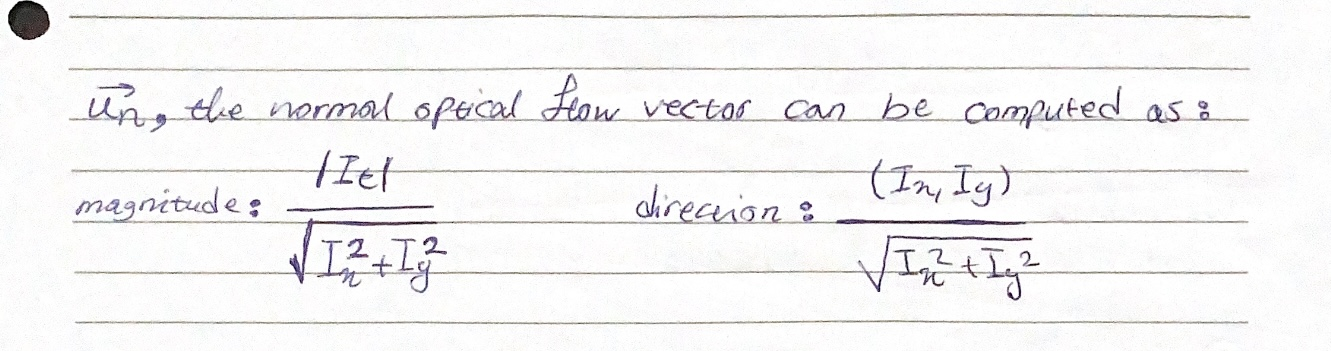 $\vec{u_n}$, the normal optical flow vector can be computed as:
magnitude: $\frac{|I_t|}{\sqrt{I_x^2+I_y^2}}$ direction: $\frac{(I_x, I_y)}{\sqrt{I_x^2+I_y^2}}$